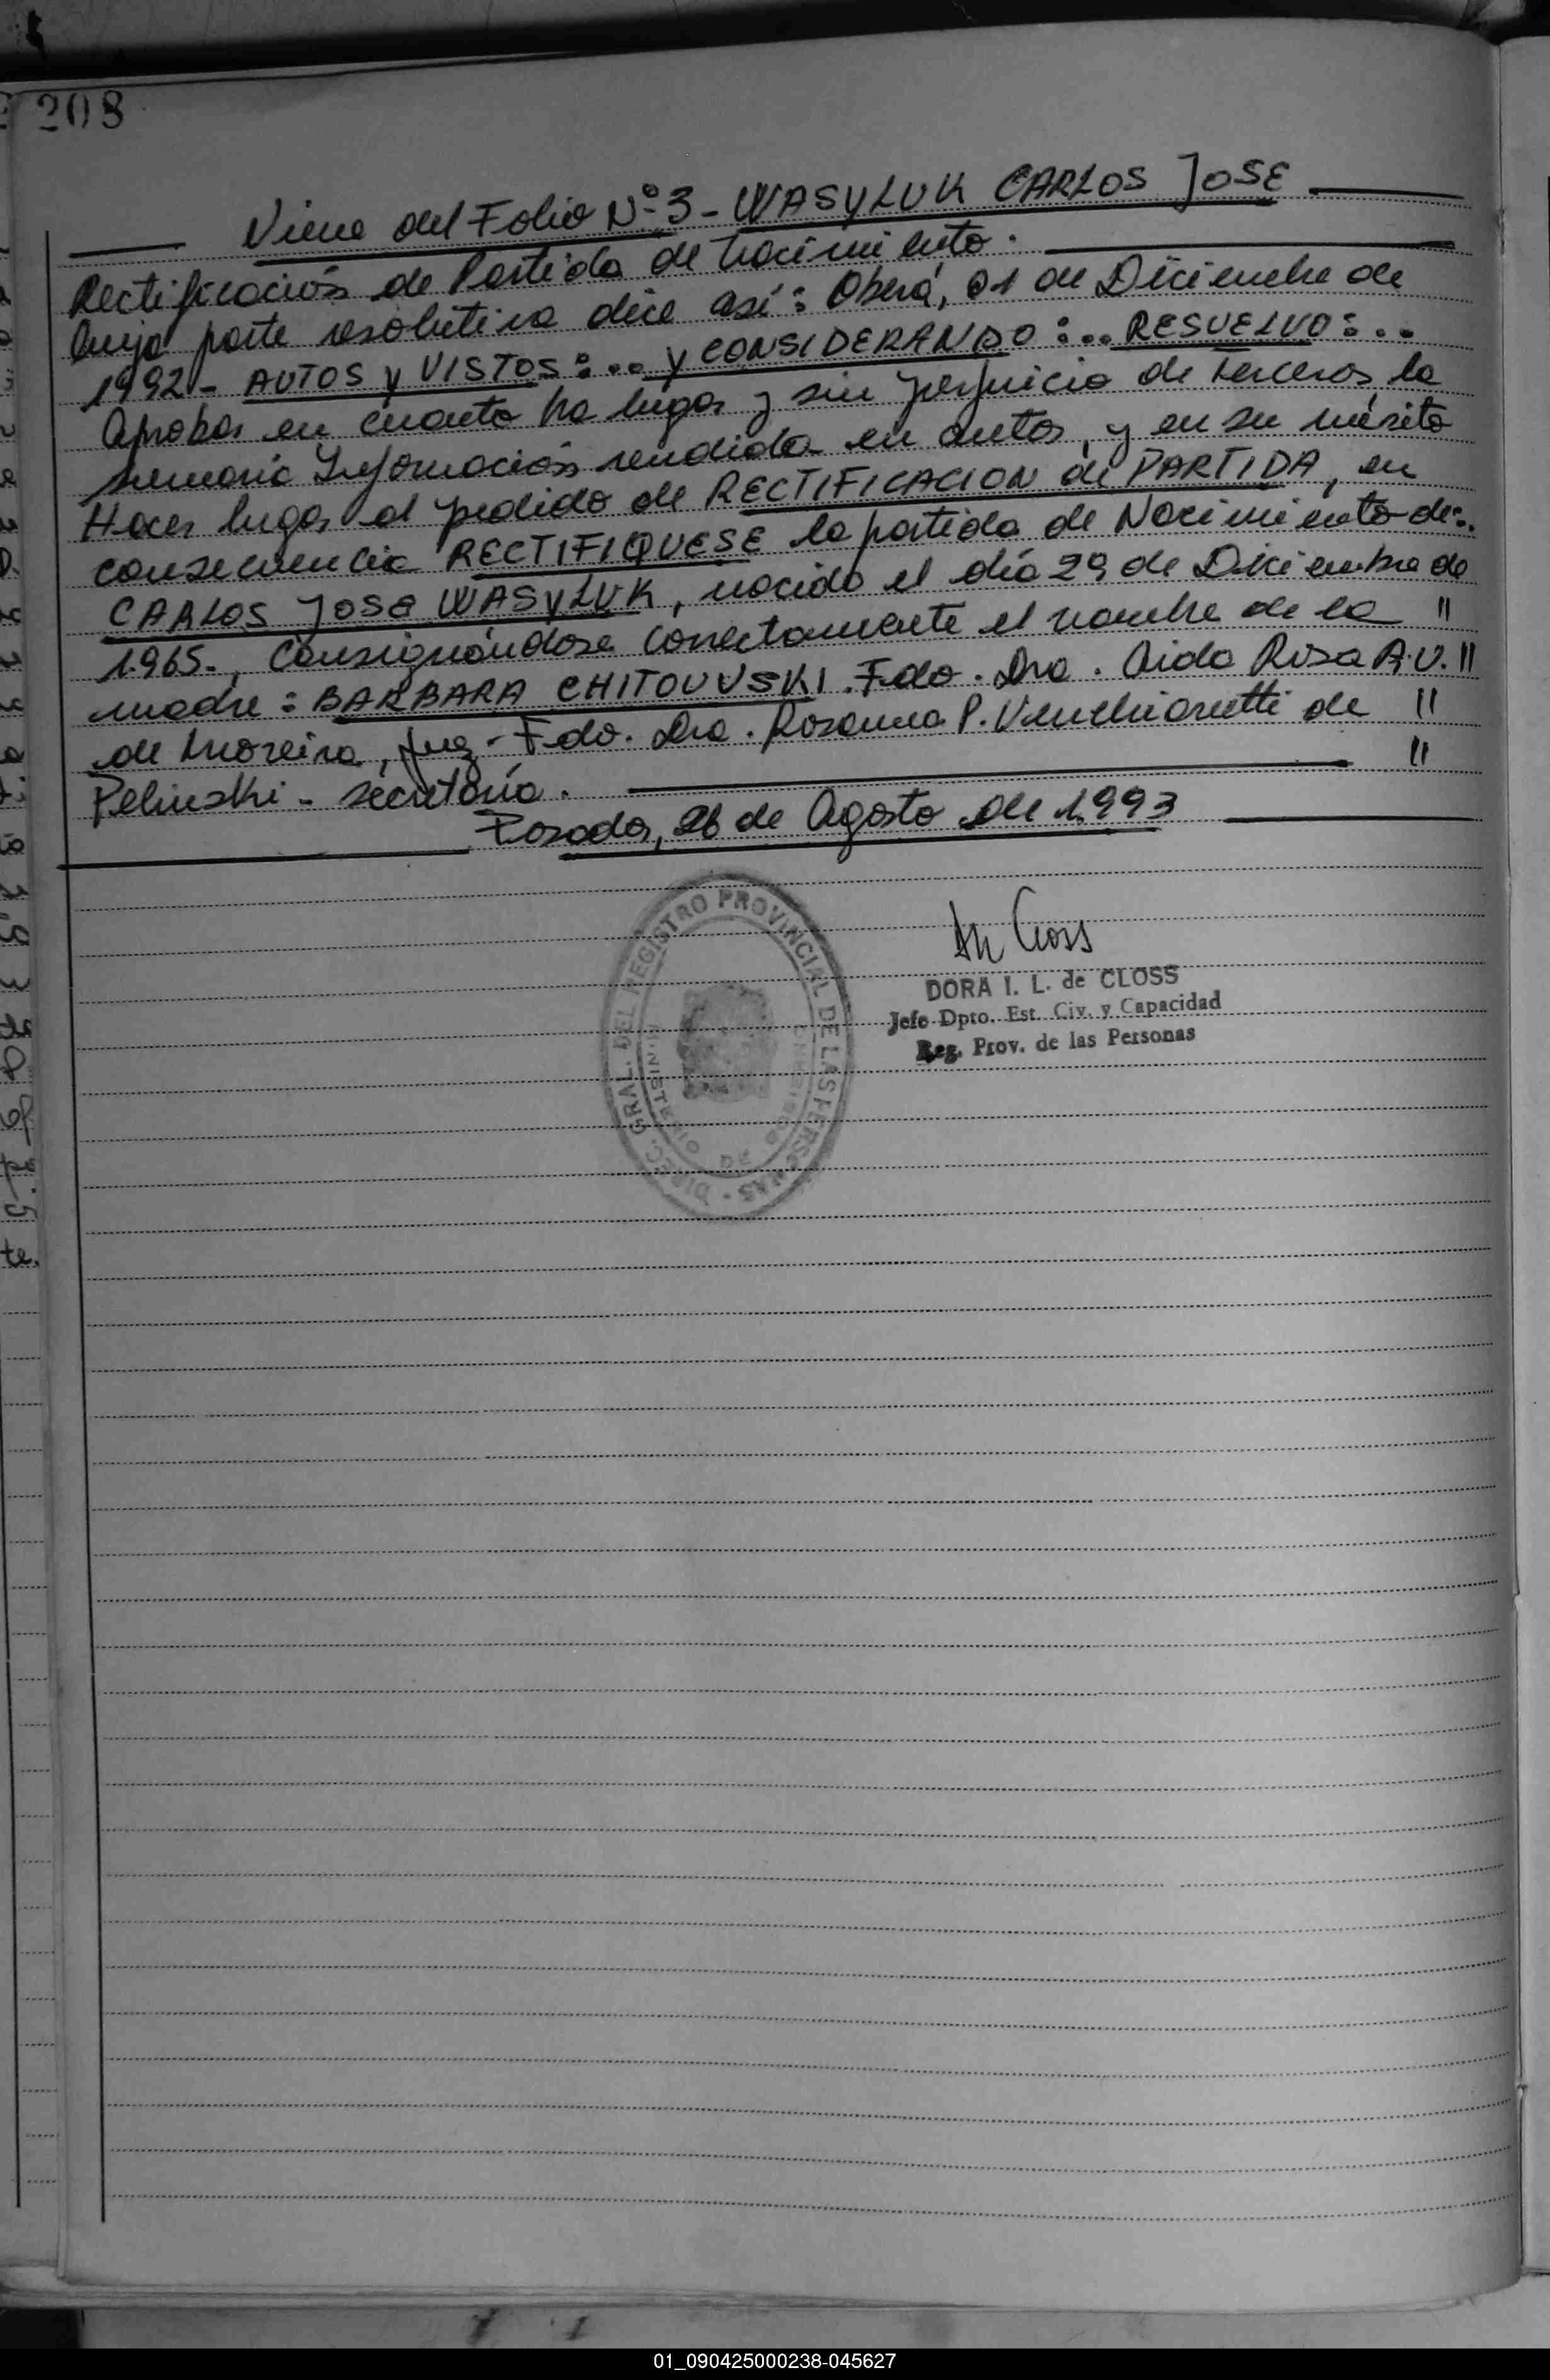 208
Viene del Folio Nº 3 - WASYLUK CARLOS JOSE
Rectificación de Partida de Nacimiento.
Cuya parte resolutiva dice así: Oberá, 01 de Diciembre de
1992 - AUTOS y VISTOS:... y CONSIDERANDO:... RESUELVO:...
Aprobar en cuanto ha lugar y sin perjuicio de terceros, la
sumaria Información rendida en autos, y en su mérito
Hacer lugar al pedido de RECTIFICACION de PARTIDA, en
consecuencia RECTIFIQUESE la partida de Nacimiento de:.
CARLOS JOSE WASYLUK, nacido el día 29 de Diciembre de
1.965., Consignándose correctamente el nombre de la "
madre: BARBARA CHITOVVSKI. Fdo. Dra. Aida Rosa A.V. "
de Moreira, Juez - Fdo. Dra. Rosanna P. Venchiarutti de "
Pelinski - secretaria. "
Posadas, 26 de Agosto de 1.993
DIREC. GRAL. DEL REGISTRO PROVINCIAL DE LAS PERSONAS
MINISTERIO DE GOBIERNO
DORA I. L. de CLOSS
Jefe Dpto. Est. Civ. y Capacidad
Reg. Prov. de las Personas
01_090425000238-045627